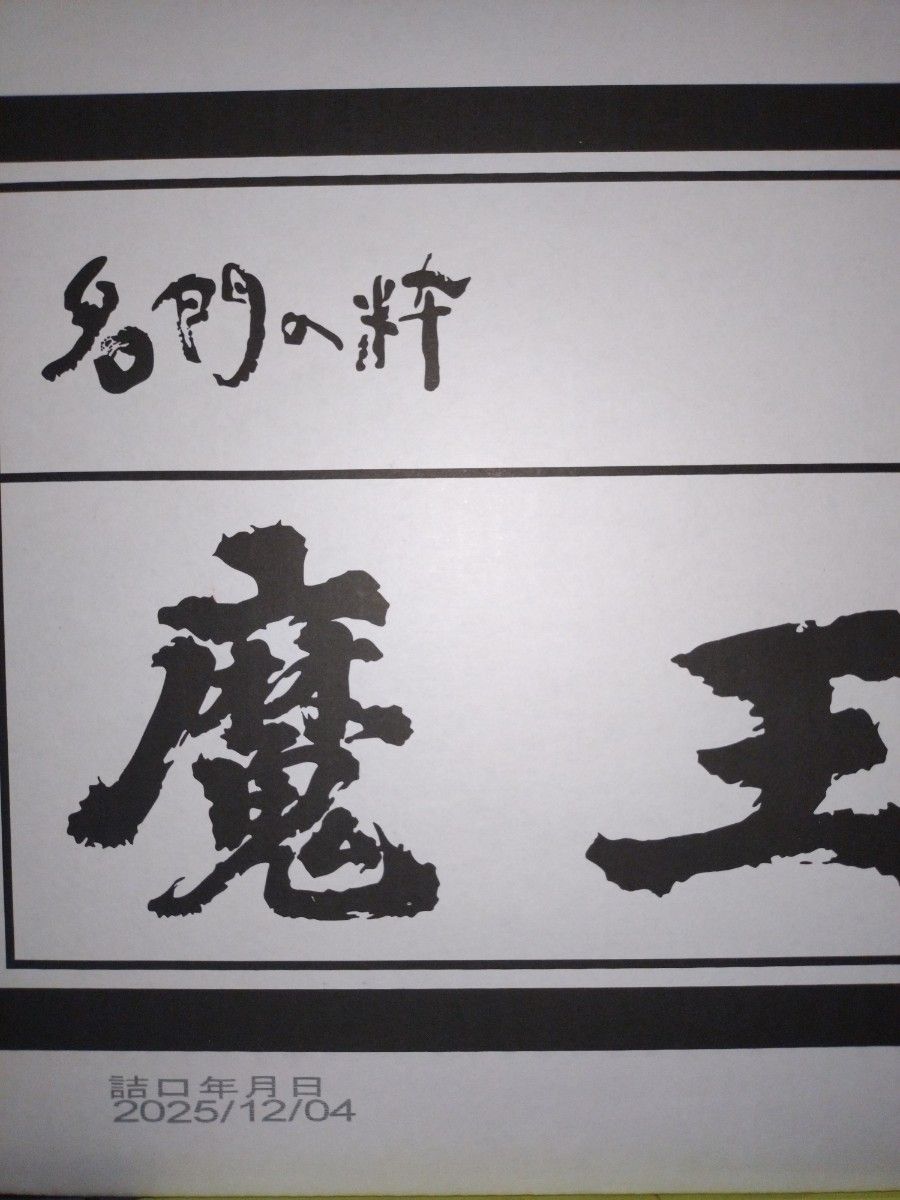 名門の粋
魔王
詰口年月日
2025/12/04